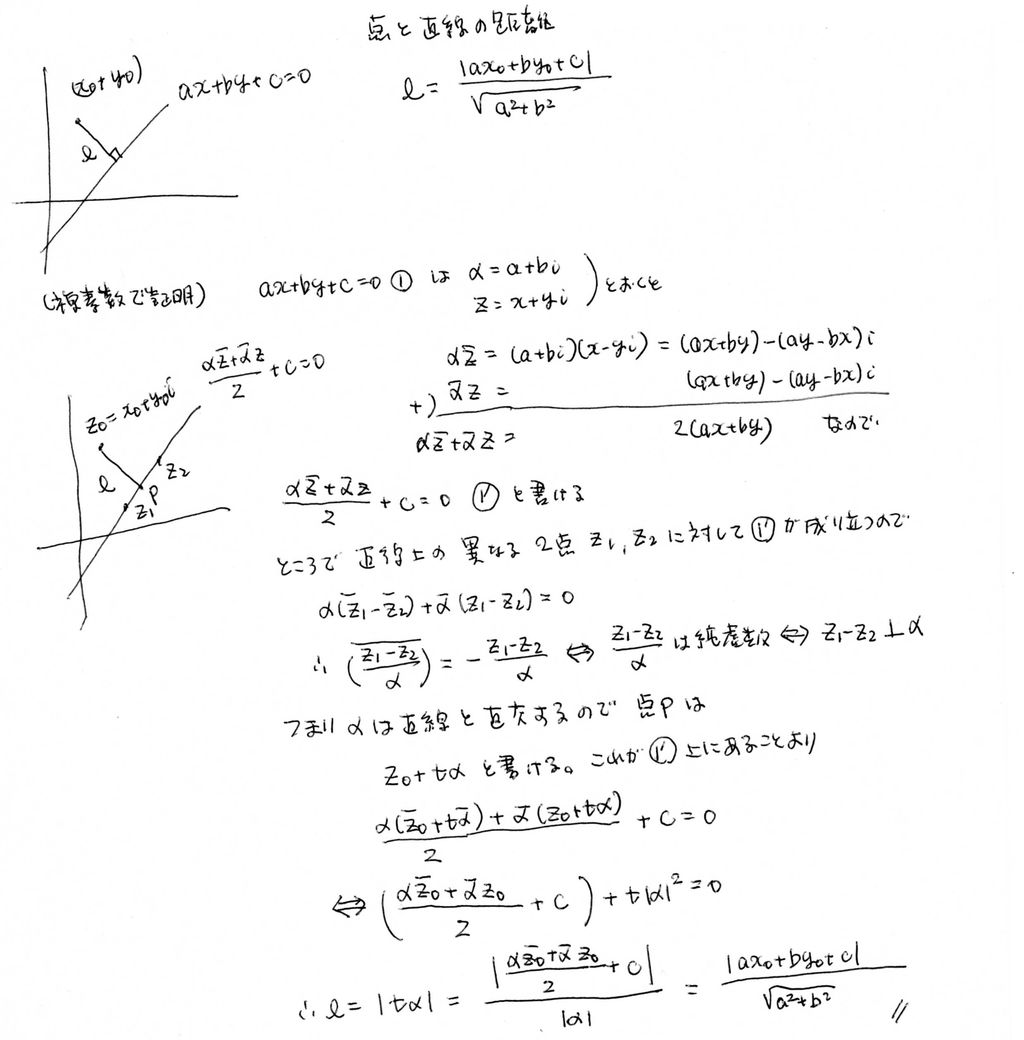 点と直線の距離
(x₀+y₀)
ax+by+c=0
l = |ax₀+by₀+c| / √a²+b²
l
(複素数で証明) ax+by+c=0 ① は α=a+bi
z=x+yi ) とおくと
(αz̄+ᾱz)/2 + c=0
z₀=x₀+y₀i
l
P
z₁
z₂
αz̄ = (a+bi)(x-yi) = (ax+by)-(ay-bx)i
+) ᾱz = (ax+by)-(ay-bx)i
αz̄+ᾱz = 2(ax+by) なので
(αz̄+ᾱz)/2 + c=0 ①' と書ける
ところで 直線上の 異なる 2点 z₁, z₂ に対して ①' が成り立つので
α(z̄₁-z̄₂)+ᾱ(z₁-z₂)=0
∴ \overline{((z₁-z₂)/α)} = -(z₁-z₂)/α ⇔ (z₁-z₂)/α は純虚数 ⇔ z₁-z₂⊥α
つまり αは直線と直交するので 点Pは
z₀+tα と書ける。これが ①' 上にあることより
(α(z̄₀+tᾱ)+ᾱ(z₀+tα))/2 + c=0
⇔ ((αz̄₀+ᾱz₀)/2 + c) + t|α|²=0
∴ l = |tα| = |(αz̄₀+ᾱz₀)/2 + c| / |α| = |ax₀+by₀+c| / √a²+b² //